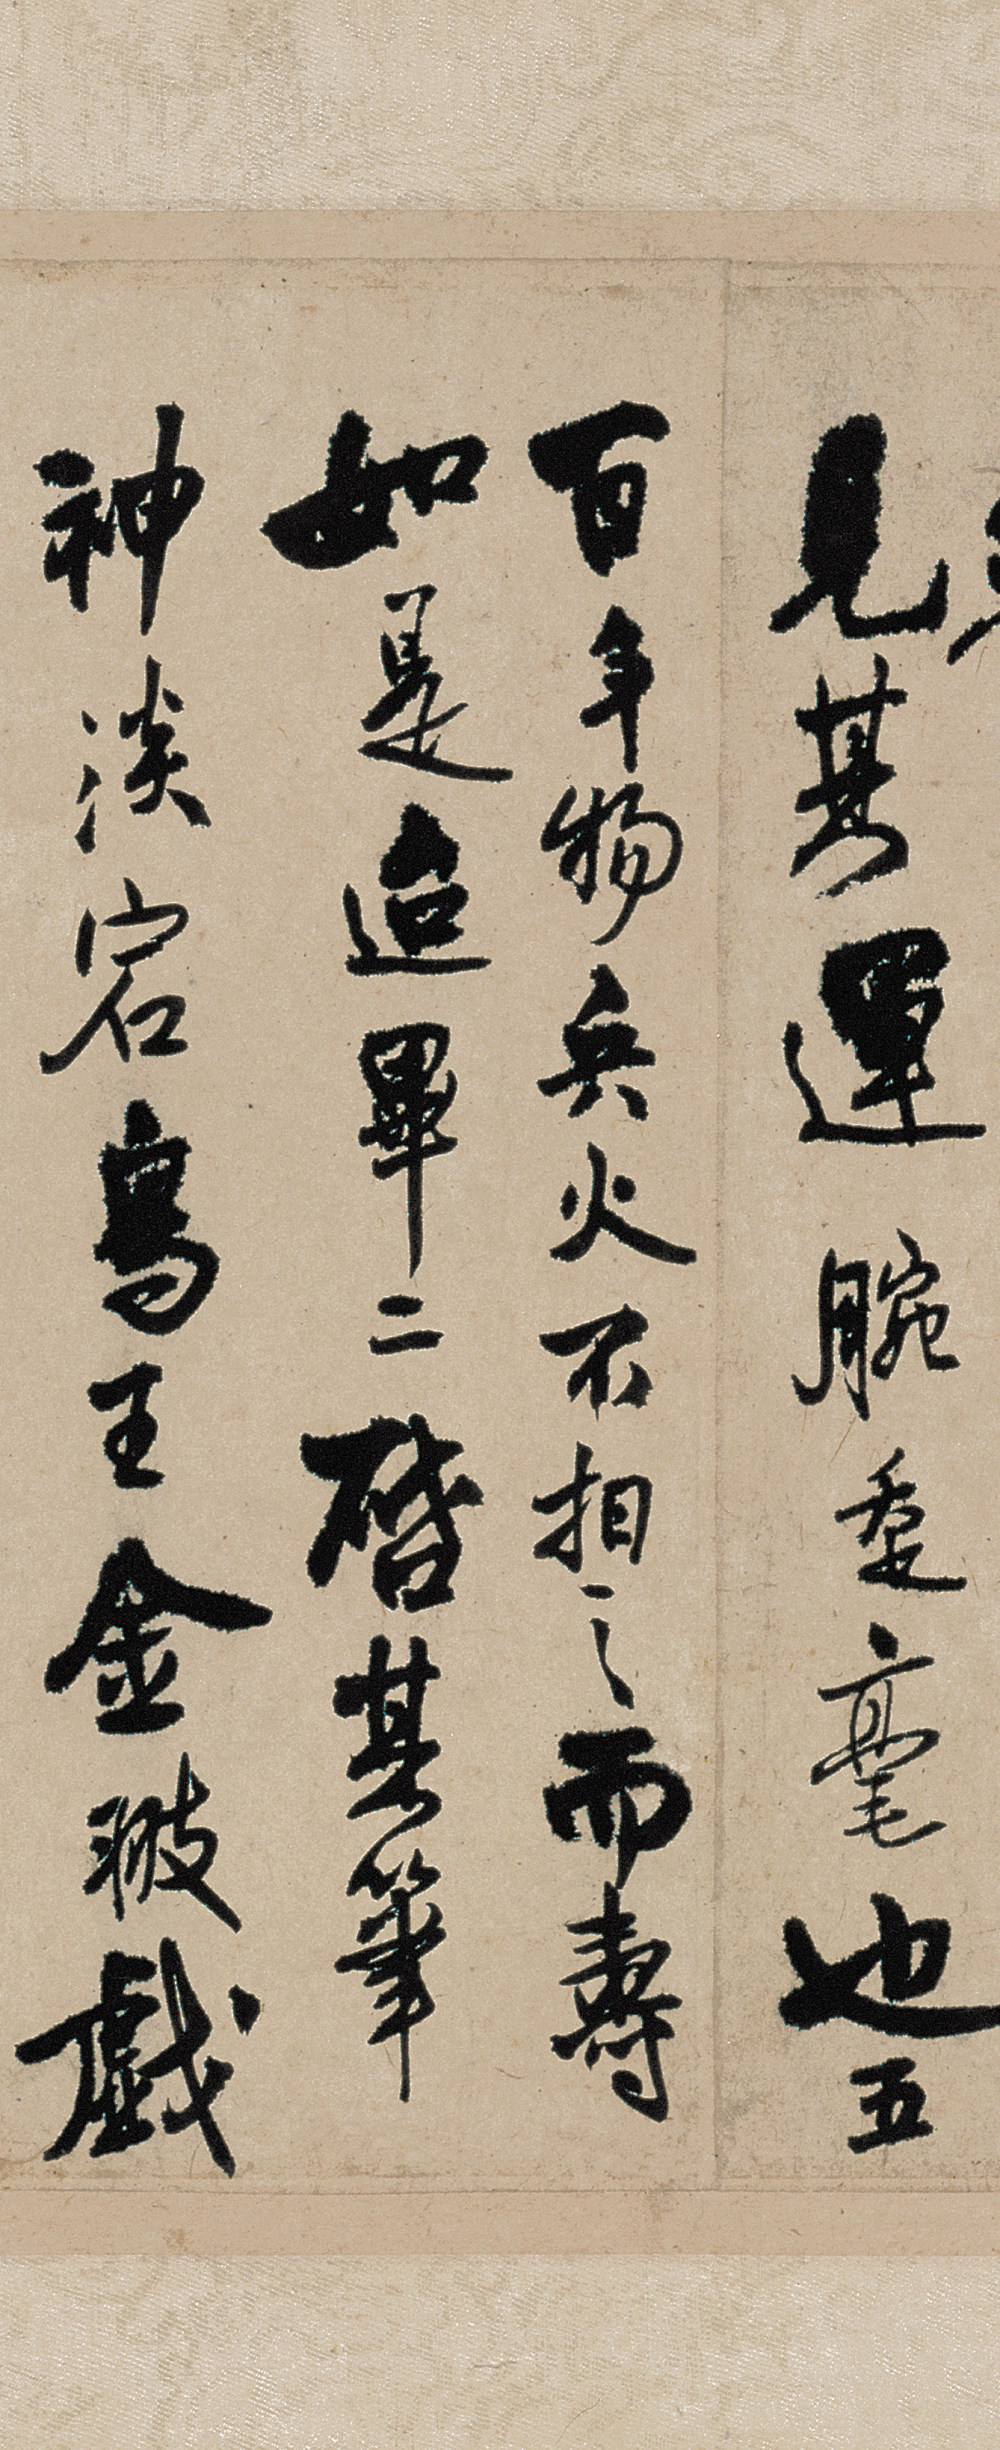 見其運腕垂毫也五
百年物兵火不相之而壽
如是畢二啓其筆
神淡宕鳥王金翄戲